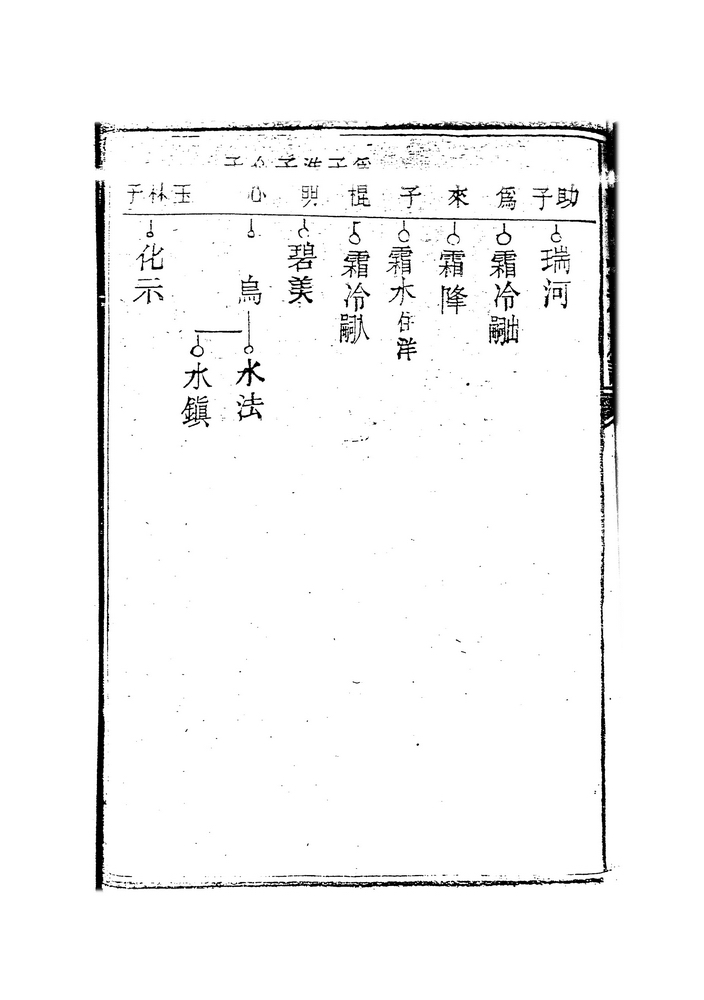 助子
瑞河
爲
霜冷出嗣
來
霜降
子
霜水住洋
棍
霜冷入嗣
明
碧美
心
烏
水法
水鎮
玉林子
化示